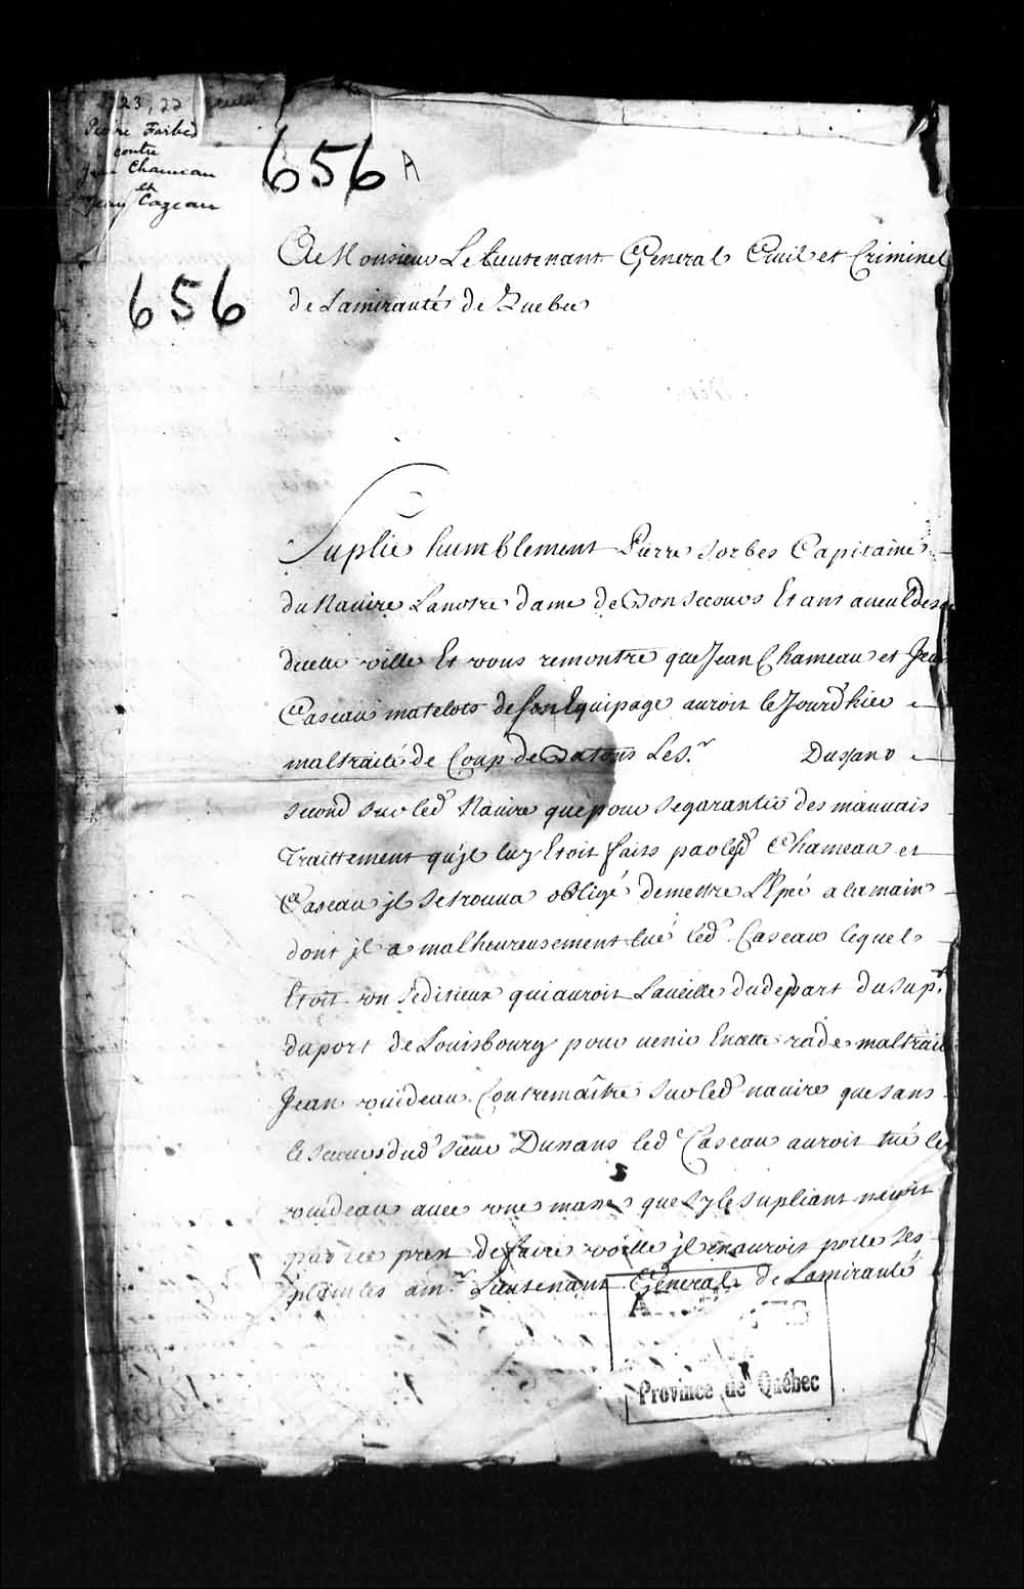 1723, 22
Pierre Forbes
contre
Jean Chameau
et
Jean Cazeau
656 A
656
A Monsieur Le Lieutenant General Civil et Criminel
de Lamirauté de Quebec
Suplie humblement Pierre Forbes Capitaine
du Navire Lanotre dame de Bon Secours Etant aneuldesa
dicelle ville Et vous remontre que Jean Chameau et Jean
Caseau matelots de son Equipage auroit le Jourd'hier
maltraité de Coup de Batons Le S.r Dussans
second sur led. Navire que pour se garantir des mauvais
Traittement qu'jl luy Etoit faits par lesd Chameau et
Caseau jl se trouva obligé de mettre L'Epeé a la main
dont jl a malheureusement tué led. Caseau lequel
Etoit un seditieux qui auroit La veille du depart du Sup.t
du port de Louisbourg pour venir En cette rade maltraité
Jean videau Contremaître sur led. navire que sans
le secours dud. sieur Dussans led. Caseau auroit tué le
videau avec une masse que sy le supliant n'avoit
pas été prest de faire voille jl en auroit porté ses
plaintes a m.r Lieutenant General de Lamirauté
Province de Québec